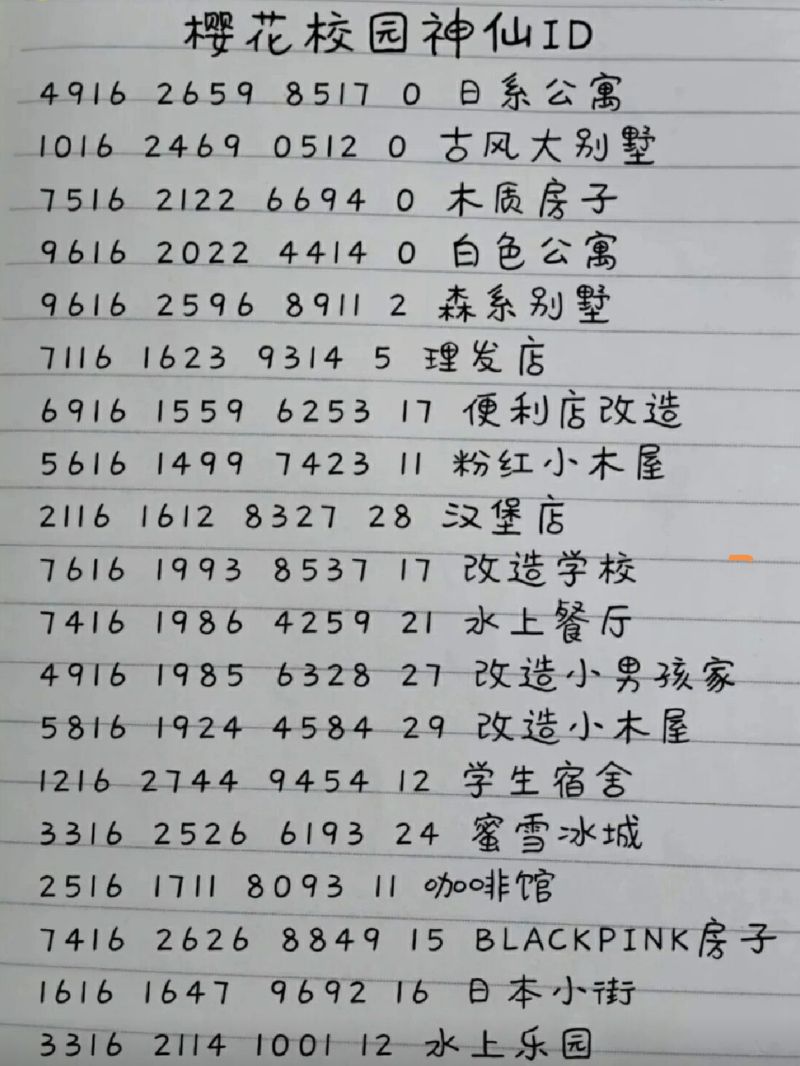 樱花校园神仙ID
4916 2659 8517 0 日系公寓
1016 2469 0512 0 古风大别墅
7516 2122 6694 0 木质房子
9616 2022 4414 0 白色公寓
9616 2596 8911 2 森系别墅
7116 1623 9314 5 理发店
6916 1559 6253 17 便利店改造
5616 1499 7423 11 粉红小木屋
2116 1612 8327 28 汉堡店
7616 1993 8537 17 改造学校
7416 1986 4259 21 水上餐厅
4916 1985 6328 27 改造小男孩家
5816 1924 4584 29 改造小木屋
1216 2744 9454 12 学生宿舍
3316 2526 6193 24 蜜雪冰城
2516 1711 8093 11 咖啡馆
7416 2626 8849 15 BLACKPINK房子
1616 1647 9692 16 日本小街
3316 2114 1001 12 水上乐园